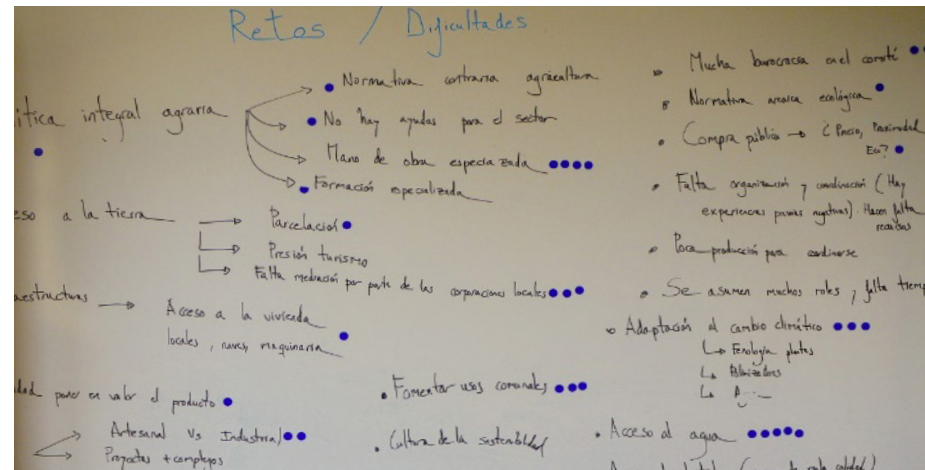 Retos / Dificultades
ítica integral agraria
Normativa contraria agricultura
No hay ayudas para el sector
Mano de obra especializada
Formación especializada
eso a la tierra
Parcelación
Presión turismo
Falta mediación por parte de las corporaciones locales
aestructuras
Acceso a la vivienda
locales, naves, maquinaria
dad poner en valor el producto
Artesanal vs Industrial
Proyectos + complejos
Fomentar usos comunales
Cultura de la sostenibilidad
Mucha burocracia en el comité
Normativa ecológica
Compra pública → ¿Precio, Proximidad
Eco?
Falta organización y coordinación (Hay
experiencias previas negativas). Hacen falta
Poca producción para coordinarse
Se asumen muchos roles, falta tiemp
Adaptación al cambio climático
Fenología plantas
Polinizadores
Acceso al agua